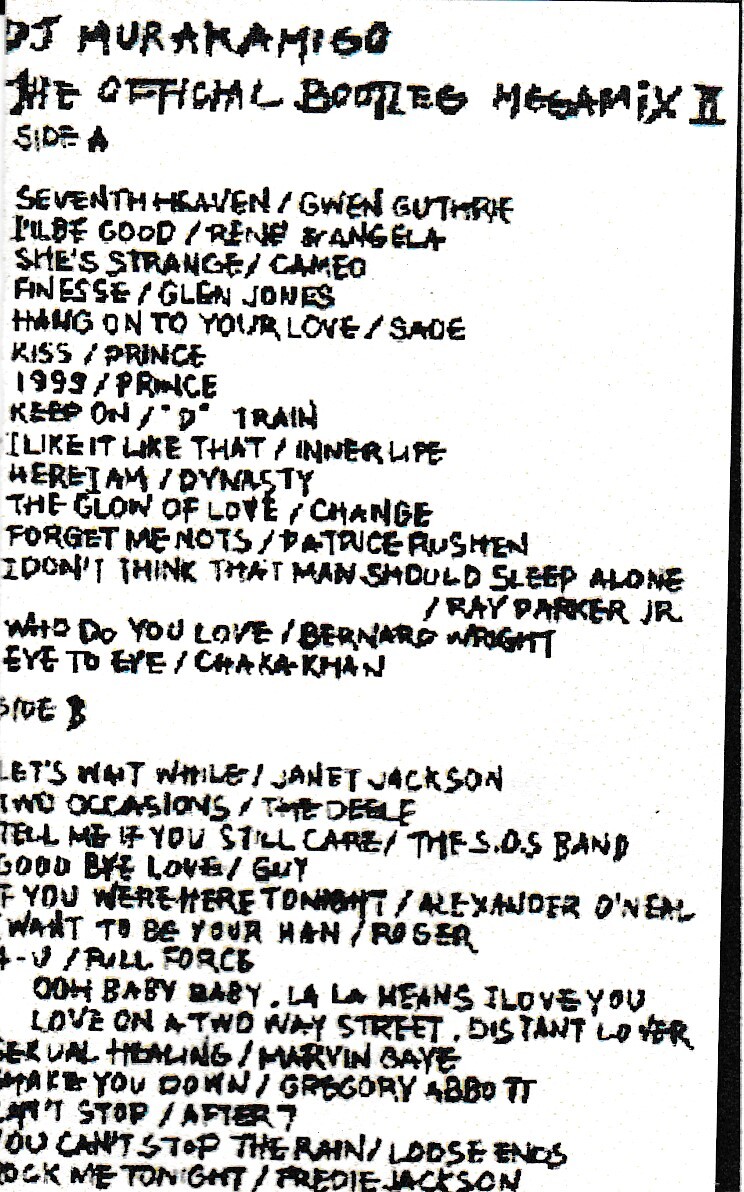 DJ MURAKAMIGO
THE OFFICIAL BOOTLEG MEGAMiX II
SIDE A
SEVENTH HEAVEN / GWEN GUTHRIE
I'LL BE GOOD / RENE & ANGELA
SHE'S STRANGE / CAMEO
FINESSE / GLEN JONES
HANG ON TO YOUR LOVE / SADE
KISS / PRINCE
1999 / PRINCE
KEEP ON / "D" TRAIN
I LIKE IT LIKE THAT / INNER LIFE
HERE I AM / DYNASTY
THE GLOW OF LOVE / CHANGE
FORGET ME NOTS / PATRICE RUSHEN
I DON'T THINK THAT MAN SHOULD SLEEP ALONE
/ RAY PARKER JR.
WHO DO YOU LOVE / BERNARD WRIGHT
EYE TO EYE / CHAKA KHAN
SIDE B
LET'S WAIT WHILE / JANET JACKSON
TWO OCCASIONS / THE DEELE
TELL ME IF YOU STILL CARE / THE S.O.S BAND
GOOD BYE LOVE / GUY
IF YOU WERE HERE TONIGHT / ALEXANDER O'NEAL
I WANT TO BE YOUR MAN / ROGER
4-U / FULL FORCE
OOH BABY BABY . LA LA MEANS I LOVE YOU
LOVE ON A TWO WAY STREET . DISTANT LOVER
SEXUAL HEALING / MARVIN GAYE
SHAKE YOU DOWN / GREGORY ABBOTT
CAN'T STOP / AFTER 7
YOU CAN'T STOP THE RAIN / LOOSE ENDS
ROCK ME TONIGHT / FREDIE JACKSON